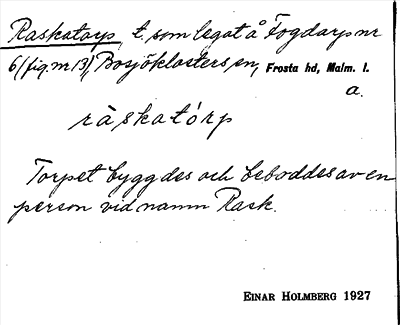 Raskatorp, t. som legat å Fogdarp nr
6 (fig. nr 13), Bosjöklosters sn, Frosta hd, Malm. l.
a.
ràskatórp
Torpet byggdes och beboddes av en
person vid namn Rask.
EINAR HOLMBERG 1927